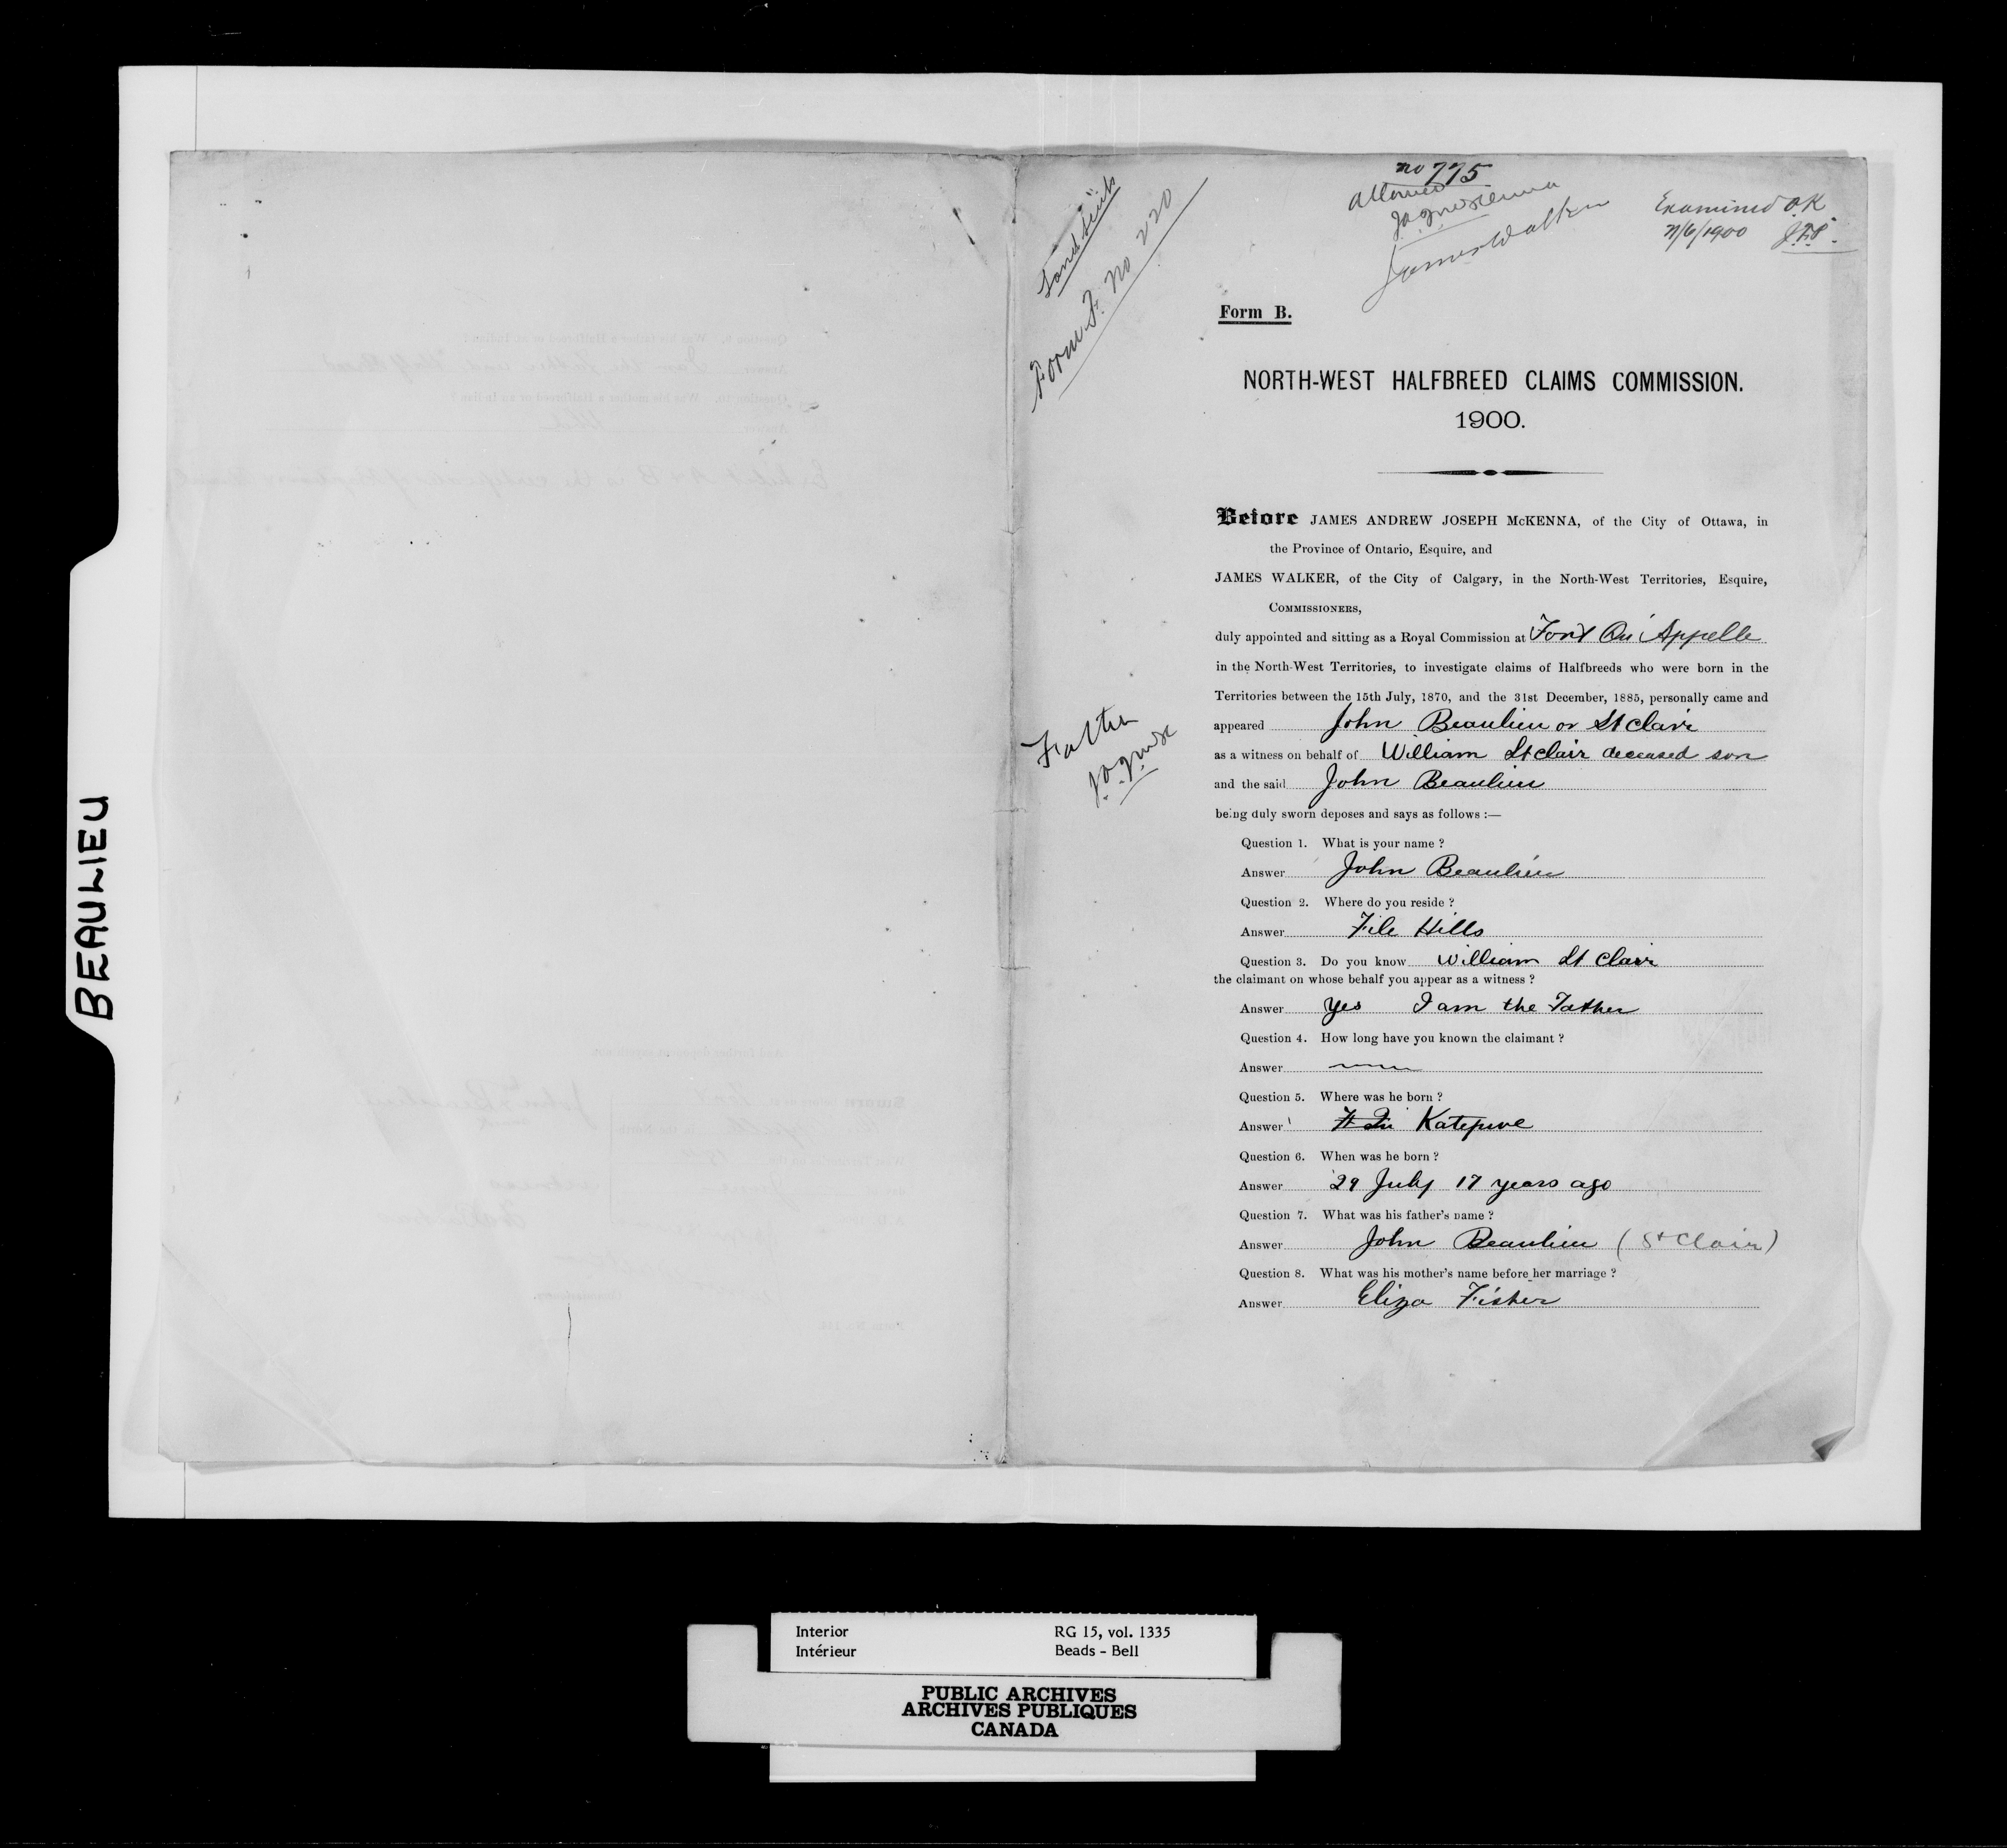 BEAULIEU
Land Scrip
Form F. No 220
No 775
Allowed
J.A.J. McKenna
James Walker
Examined OK
/6/1900 J.F.P.
Form B.
NORTH-WEST HALFBREED CLAIMS COMMISSION.
1900.
Before JAMES ANDREW JOSEPH McKENNA, of the City of Ottawa, in
the Province of Ontario, Esquire, and
JAMES WALKER, of the City of Calgary, in the North-West Territories, Esquire,
COMMISSIONERS,
duly appointed and sitting as a Royal Commission at Fort Qu'Appelle
in the North-West Territories, to investigate claims of Halfbreeds who were born in the
Territories between the 15th July, 1870, and the 31st December, 1885, personally came and
appeared John Beaulieu or St Clair
as a witness on behalf of William St Clair deceased son
and the said John Beaulieu
being duly sworn deposes and says as follows :—
Father
J.A.J. McK
Question 1. What is your name ?
Answer John Beaulieu
Question 2. Where do you reside ?
Answer File Hills
Question 3. Do you know William St Clair
the claimant on whose behalf you appear as a witness ?
Answer Yes I am the Father
Question 4. How long have you known the claimant ?
Answer
Question 5. Where was he born ?
Answer Ft Qu Katepwe
Question 6. When was he born ?
Answer 29 July 17 years ago
Question 7. What was his father's name ?
Answer John Beaulieu (St Clair)
Question 8. What was his mother's name before her marriage ?
Answer Eliza Fisher
Interior RG 15, vol. 1335
Intérieur Beads - Bell
PUBLIC ARCHIVES
ARCHIVES PUBLIQUES
CANADA